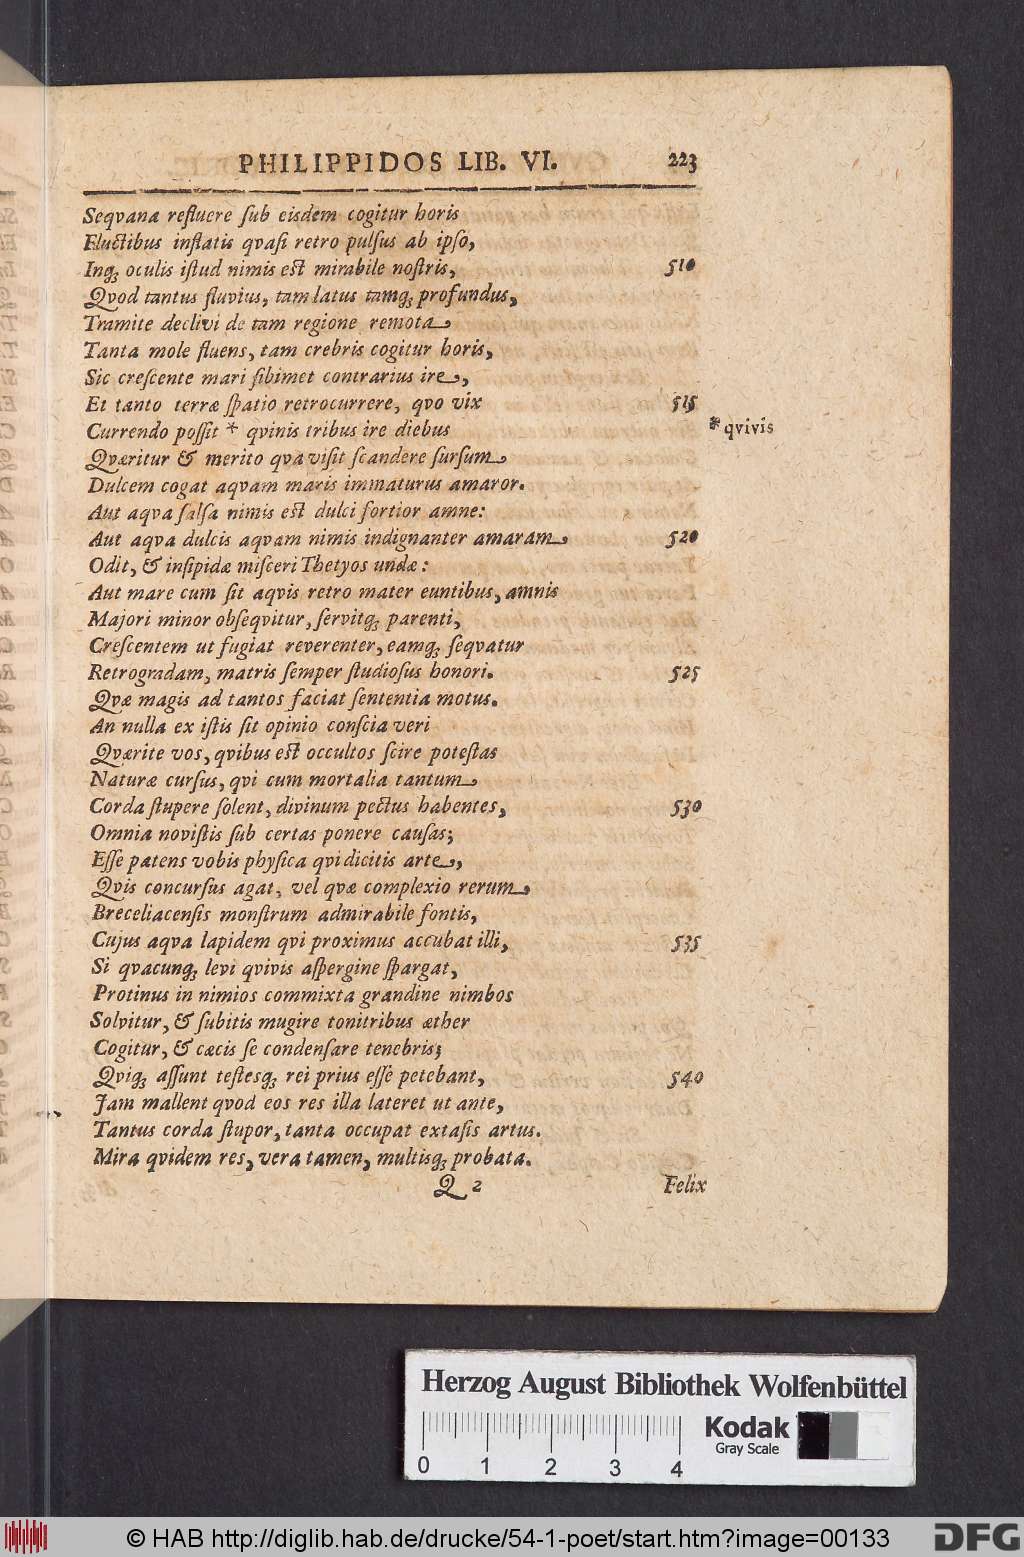 PHILIPPIDOS LIB. VI. 223
Seqvana refluere ſub eisdem cogitur horis
Fluctibus inflatis qvaſi retro pulſus ab ipſo,
Inq; oculis iſtud nimis est mirabile noſtris, 510
Qvod tantus fluvius, tam latus tamq; profundus,
Tramite declivi de tam regione remota
Tanta mole fluens, tam crebris cogitur horis,
Sic creſcente mari ſibimet contrarius ire,
Et tanto terræ ſpatio retrocurrere, qvo vix 515
Currendo poſſit * qvinis tribus ire diebus * qvivis
Qværitur & merito qva viſit ſcandere ſurſum
Dulcem cogat aqvam maris immaturus amaror.
Aut aqva ſalſa nimis est dulci fortior amne:
Aut aqva dulcis aqvam nimis indignanter amaram 520
Odit, & inſipidæ miſceri Thetyos undæ:
Aut mare cum ſit aqvis retro mater euntibus, amnis
Majori minor obſeqvitur, ſervitq; parenti,
Creſcentem ut fugiat reverenter, eamq; ſeqvatur
Retrogradam, matris ſemper ſtudioſus honori. 525
Qvæ magis ad tantos faciat ſententia motus.
An nulla ex iſtis ſit opinio conſcia veri
Qværite vos, qvibus est occultos ſcire poteſtas
Naturæ curſus, qvi cum mortalia tantum
Corda ſtupere ſolent, divinum pectus habentes, 530
Omnia noviſtis ſub certas ponere cauſas;
Eſſe patens vobis phyſica qvi dicitis arte,
Qvis concurſus agat, vel qvæ complexio rerum
Breceliacenſis monſtrum admirabile fontis,
Cujus aqva lapidem qvi proximus accubat illi, 535
Si qvacunq; levi qvivis aſpergine ſpargat,
Protinus in nimios commixta grandine nimbos
Solvitur, & ſubitis mugire tonitribus æther
Cogitur, & cæcis ſe condenſare tenebris;
Qviq; aſſunt teſtesq; rei prius eſſe petebant, 540
Jam mallent qvod eos res illa lateret ut ante,
Tantus corda ſtupor, tanta occupat extaſis artus.
Mira qvidem res, vera tamen, multisq; probata.
Q 2 Felix
Herzog August Bibliothek Wolfenbüttel
Kodak
Gray Scale
0 1 2 3 4
© HAB http://diglib.hab.de/drucke/54-1-poet/start.htm?image=00133
DFG